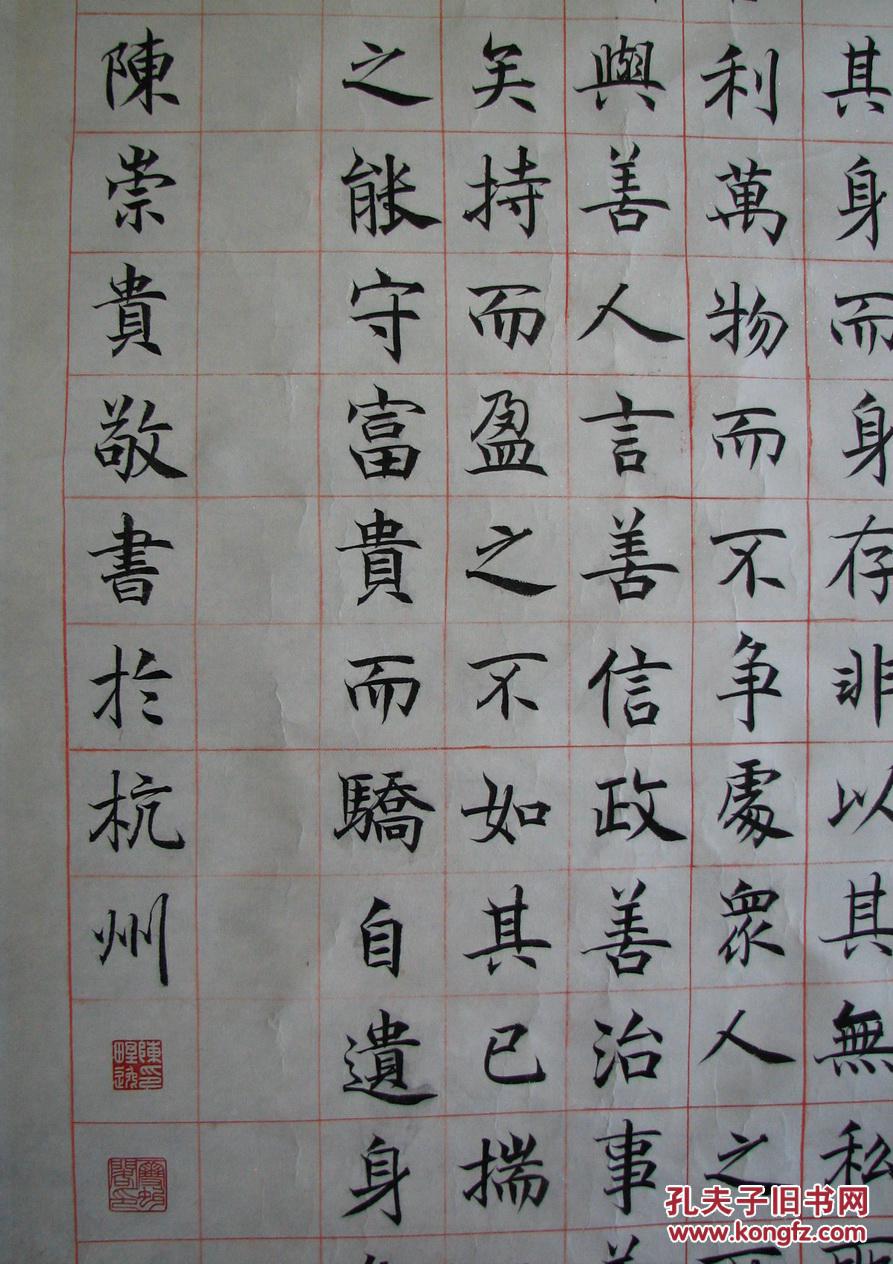 其身而身存非以其無私
利萬物而不争處衆人之
與善人言善信政善治事
矣持而盈之不如其已揣
之能守富貴而驕自遺身
陳崇貴敬書於杭州
孔夫子旧书网
www.kongfz.com